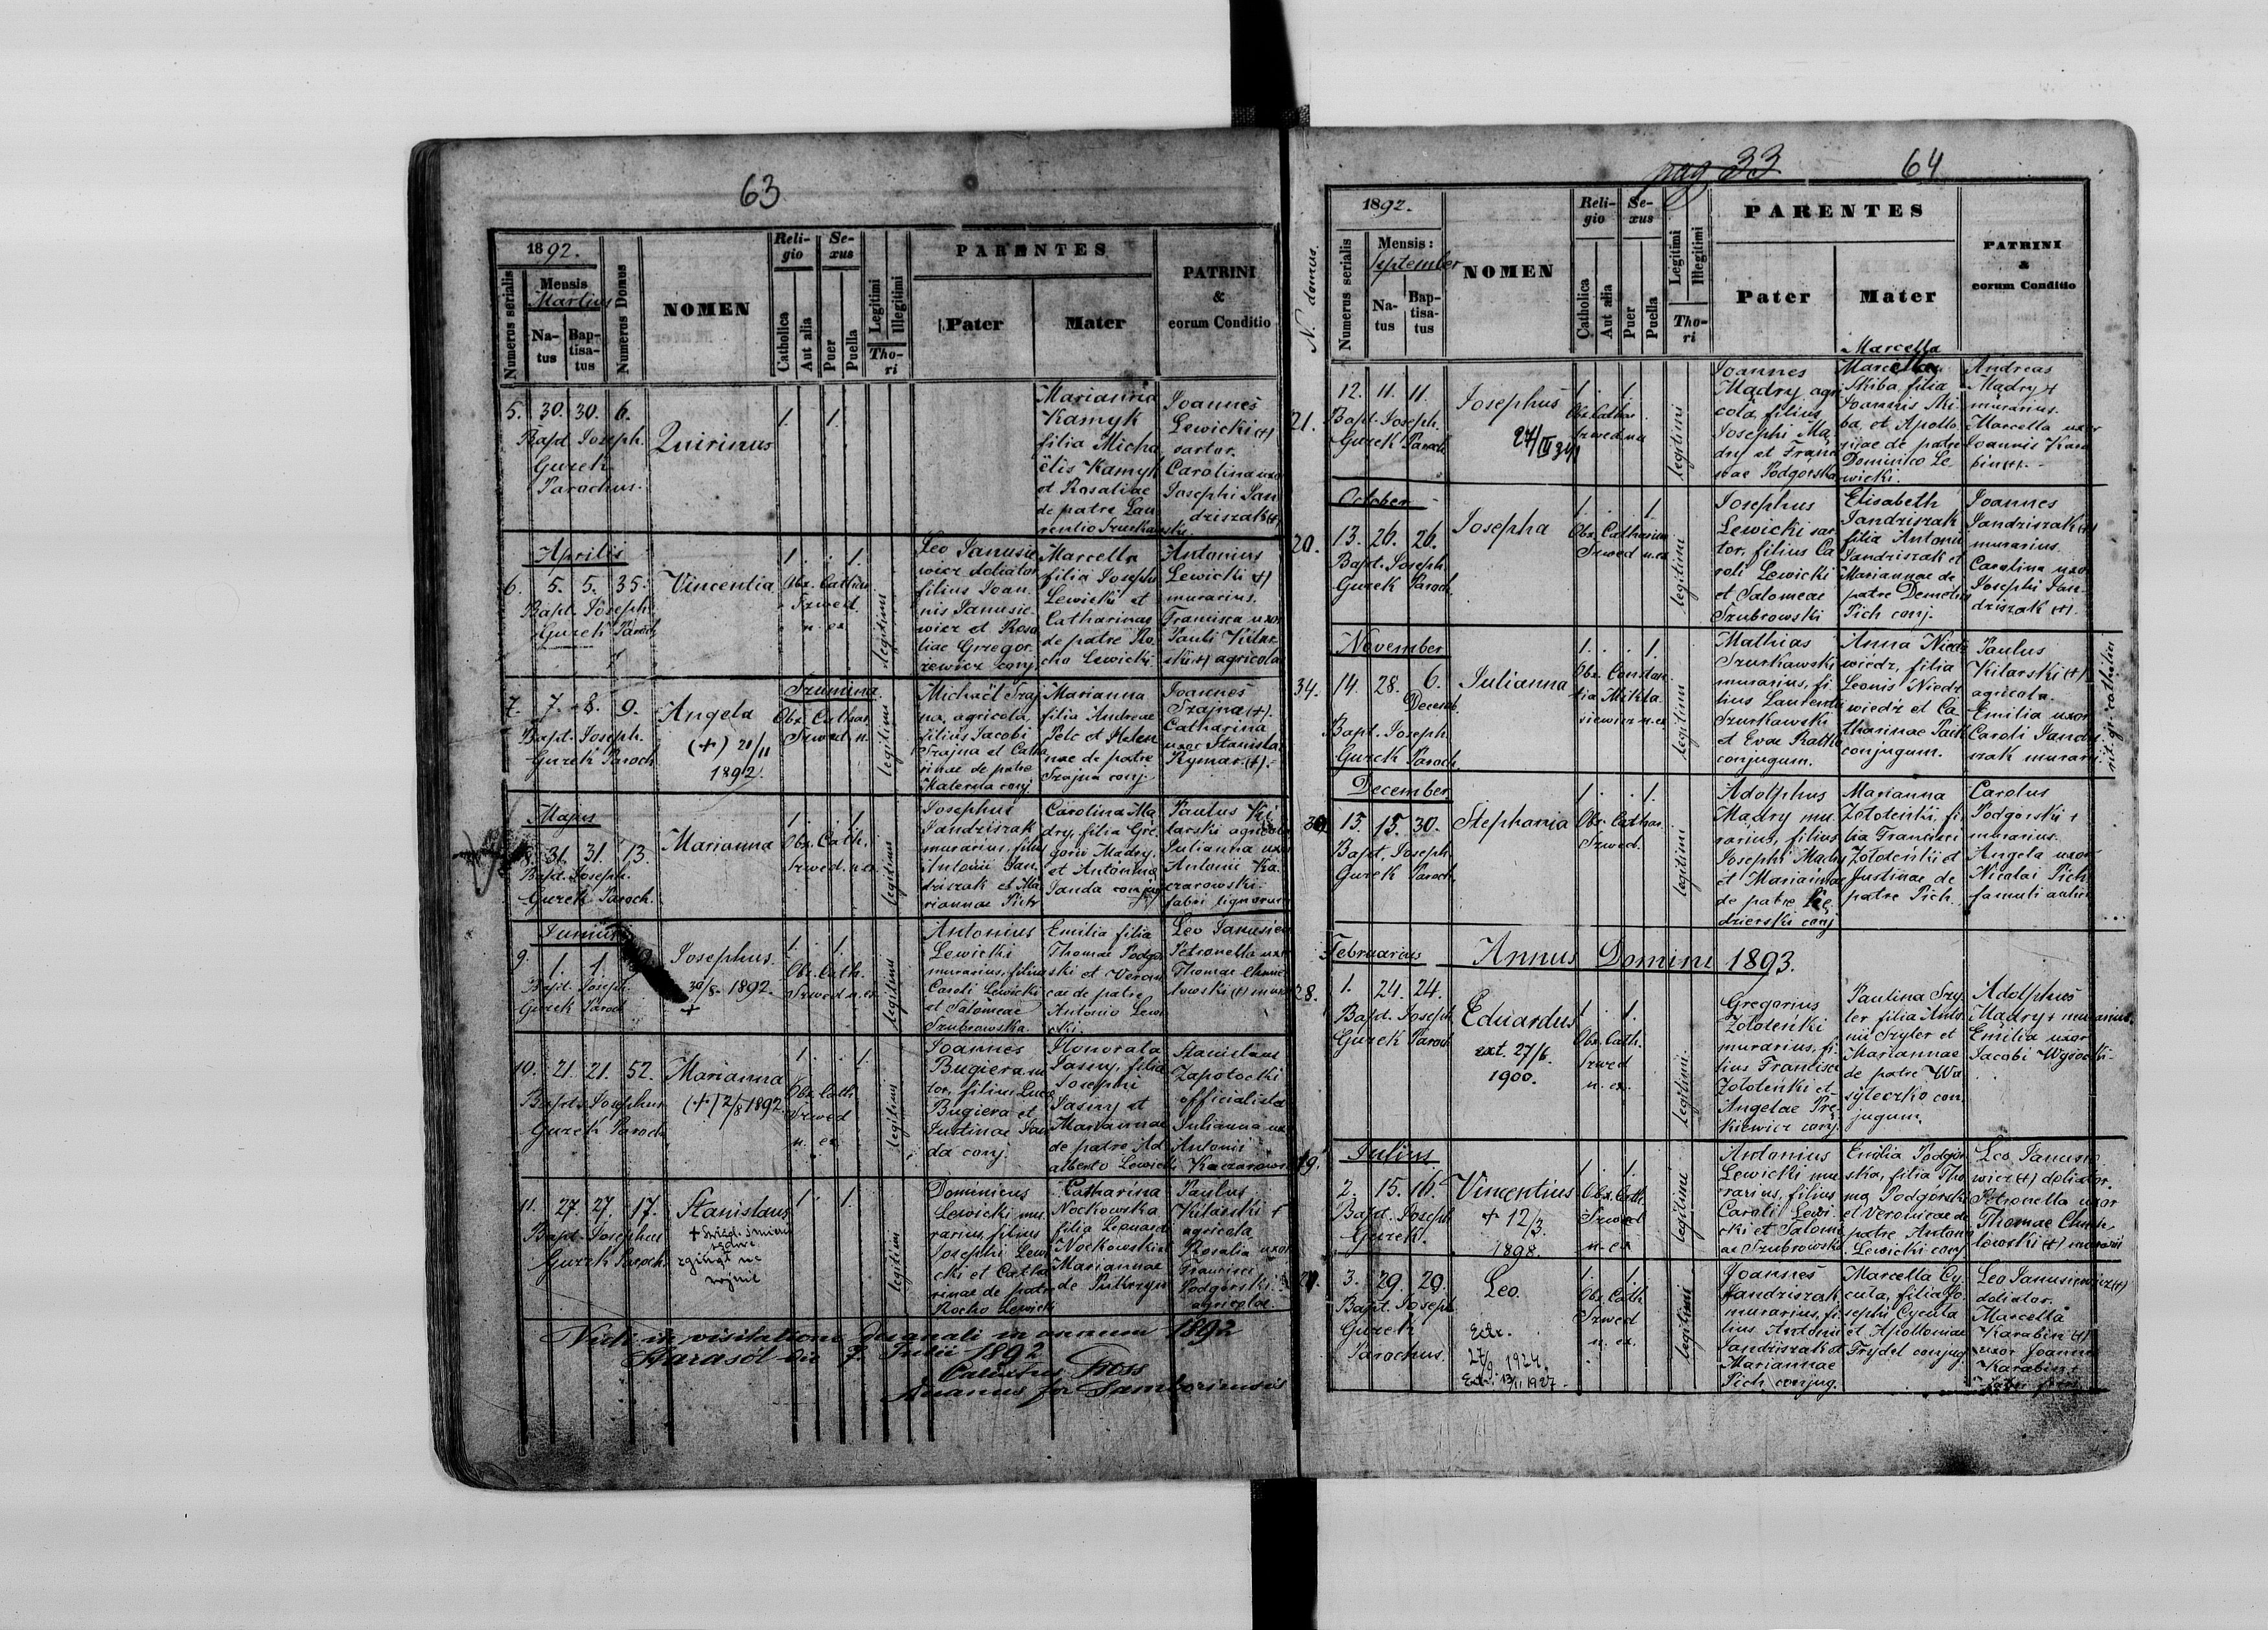 63
1892.
Mensis
Martius
Numerus serialis
Na-
tus
Bap-
tisa-
tus
Numerus Domus
NOMEN
Reli-
gio
Catholica
Aut alia
Se-
xus
Puer
Puella
Legitimi
Illegitimi
Tho-
ri
PARENTES
Pater
Mater
PATRINI
&
eorum Conditio
5. 30. 30. 6.
Bapt. Joseph.
Gurek
Parochus.
Quirinus
1. 1.
Marianna
Kamyk
filia Micha
ëlis Kamyk
et Rosaliae
de patre Lau
rentio
Joannes
Lewicki (+)
sartor.
Carolina uxo
Josephi Jan
driszak (+)
Aprilis
6. 5. 5. 35.
Bapt. Joseph.
Gurek Paroch
Vincentia
1. 1.
Obx. Cathar
Szwed.
n. ex
legitimi
Leo Janusie
wicz doliator
filius Joan
nis Janusie
wicz et Rosa
liae Gregor
zewicz conj
Marcella
filia Joseph
Lewicki et
Catharinae
de patre Ro
cho Lewicki
Antonius
Lewicki (+)
murarius.
Francisca uxor
Pauli Kilar
ski (+) agricola
7. 7. 8. 9.
Bapt. Joseph.
Gurek Paroch
Angela
(+) 21/11
1892.
Szumina
Obx. Cathar
Szwed n.
legitimi
Michaël Szaj
na, agricola,
filius Jacobi
Szajna et Catha
rinae de patre
Materna conj
Marianna
filia Andreae
Pelc et Helen
nae de patre
Szajna conj
Joannes
Szajna (+).
Catharina
uxor Stanislai
Rymar (+).
Majus
8. 31. 31. 13.
Bapt. Joseph.
Gurek Paroch.
Marianna
1. 1.
Obx. Cath.
Szwed. n. ex
legitimi
Josephus
Jandziszak
murarius, filius
Antonii Jan
driszak et Ma
riannae Pich
Carolina Ma
dry, filia Gre
gorii Madry.
et Antonina
Janda conjug
Paulus Ki
larski agricola
Julianna uxor
Antonii Ka
czarowski
fabri lignarum
Junius
9. 1. 1.
Bapt. Joseph.
Gurek Paroch
Josephus.
30/8. 1892.
+
1. 1.
Obx. Cath.
Szwed n. ex
legitimi
Antonius
Lewicki
murarius, filius
Caroli Lewicki
et Salomeae
Szubrowska.
Emilia filia
Thomae Podgor
ski et Veroni
cae de patre
Antonio Lewi
cki.
Leo Janusiew
Petronella uxor
Thomae Chmie
lowski (+) mura
10. 21. 21. 52.
Bapt. Josephus
Gurek Paroch
Marianna
(+) 2/8 1892
1. 1.
Obx. Cath
Szwed
n. ex
legitimi
Joannes
Bugiera
tor, filius Luca
Bugiera et
Justinae Jan
da conj.
Honorata
Jasiny, filia
Josephi
Jasiny et
Mariannae
de patre Ad
alberto Lewicki
Stanislaus
Zapotocki
officialista
Julianna uxor
Antonii
Kaczarowski
11. 27. 27. 17.
Bapt. Josephus
Gurek Paroch
Stanislaus
zginął na
wojnie
1. 1.
legitimi
Dominicus
Lewicki mu
rarius, filius
Josephi Lewi
cki et Catha
rinae de patre
Rocho Lewicki
Catharina
Nockowska
filia Leonardi
Nockowski et
Mariannae
de Pulkryn
Paulus
Kilarski +
agricola
Rosalia uxor
Francisci
Podgorski
agricolae
Vidi in visitatione decanali in annum 1892
Starasól die 7. Julii 1892
Calixtus Fross
Decanus for Samboriensis
pag 33
64
N. domus.
1892.
Numerus serialis
Mensis:
September
Na-
tus
Bap-
tisa-
tus
NOMEN
Reli-
gio
Catholica
Aut alia
Se-
xus
Puer
Puella
Legitimi
Illegitimi
Tho-
ri
PARENTES
Pater
Mater
PATRINI
&
eorum Conditio
21.
12. 11. 11.
Bapt. Joseph.
Gurek Paroch
Josephus
27/IX 34
1. 1.
Obx. Cathar
Szwed n. a
legitimi
Joannes
Madry agri
cola, filius
Josephi Ma
dry et Franci
scae Podgorska
Marcella
Marcella
Skiba, filia
Joannis Ski
ba, et Apollo
niae de patre
Dominico Le
wicki.
Andreas
Madry +
murarius.
Marcella uxor
Joannis Kara
bin (+).
October
20.
13. 26. 26.
Bapt. Joseph.
Gurek Paroch.
Josepha
1. 1.
Obx. Catharina
Szwed n. ex
legitimi
Josephus
Lewicki sar
tor, filius Ca
roli Lewicki
et Salomeae
Szubrowski
Elisabeth
Jandriszak
filia Antonii
Jandriszak et
Mariannae de
patre Demetrio
Pich conj.
Joannes
Jandriszak (+)
murarius.
Carolina uxor
Josephi Jan-
driszak (+).
November
34.
14. 28. 6.
Decemb.
Bapt. Joseph.
Gurek Paroch.
Julianna
1. 1.
Obx. Constan
tia Mikla
siewicz n. ex
legitimi
Mathias
Szurkawski
murarius, fi
lius Laurentii
Szurkawski
et Evae Ratka
conjugum.
Anna Niedz
wiedz, filia
Leonis Niedz
wiedz et Ca
tharinae Paik
conjugum.
Paulus
Kilarski (+)
agricola.
Emilia uxor
Caroli Jandri
szak murarii
rit. gr. cathol.
December
30.
15. 15. 30.
Bapt. Joseph
Gurek Paroch.
Stephania
1. 1.
Obx. Cathar.
Szwed.
legitimi
Adolphus
Madry mu
rarius, filius
Josephi Madry
et Mariannae
de patre Kę
dzierski conj
Marianna
Zołoteńki, fi
lia Francisci
Zołoteński et
Justinae de
patre Pich.
Carolus
Podgorski +
murarius.
Angela uxor
Nicolai Pich
famuli aulici
Februarius
Annus Domini 1893.
28.
1. 24. 24.
Bapt. Joseph
Gurek Paroch
Eduardus
ext. 27/6.
1900.
1. 1.
Obx. Cath.
Szwed
n. ex.
legitimi
Gregorius
Zołoteńki
murarius, fi
lius Francisci
Zołoteński et
Angelae Pre
kiewicz conj.
Paulina Szy
ler filia Anto
nii Szyler et
Mariannae
de patre Wa
syleczko con
jugum.
Adolphus
Madry + murarius.
Emilia uxor
Jacobi Wysocki
Julius
19.
2. 15. 16.
Bapt. Joseph
Gurek.
Vincentius
+ 12/3.
1898.
1. 1.
Obx. Cath.
Szwed
n. ex
legitimi
Antonius
Lewicki mu
rarius, filius
Caroli Lewi
cki et Salome
ae Szubrowska
Emilia Podgor
ska, filia Tho
ma Podgórski
et Veronicae de
patre Antonio
Lewicki conj
Leo Janusie
wicz (+) doliator.
Petronella uxor
Thomae Chmie
lowski (+) murarii
3. 29. 29.
Bapt. Joseph
Gurek
Parochus.
Leo.
Extr.
27/9 1924.
Extr. 13/11 1927.
1. 1.
Obx. Cath
Szwed
n. ex.
legitimi
Joannes
Jandziszak
murarius, fi
lius Antonii
Jandziszak et
Mariannae
Pich conjug.
Marcella Cy
cuta, filia Jo
sephi Cycuta
et Apolloniae
Frydel conjug
Leo Janusiewicz (+)
doliator.
Marcella
Karabin (+)
uxor Joannis
Karabin +